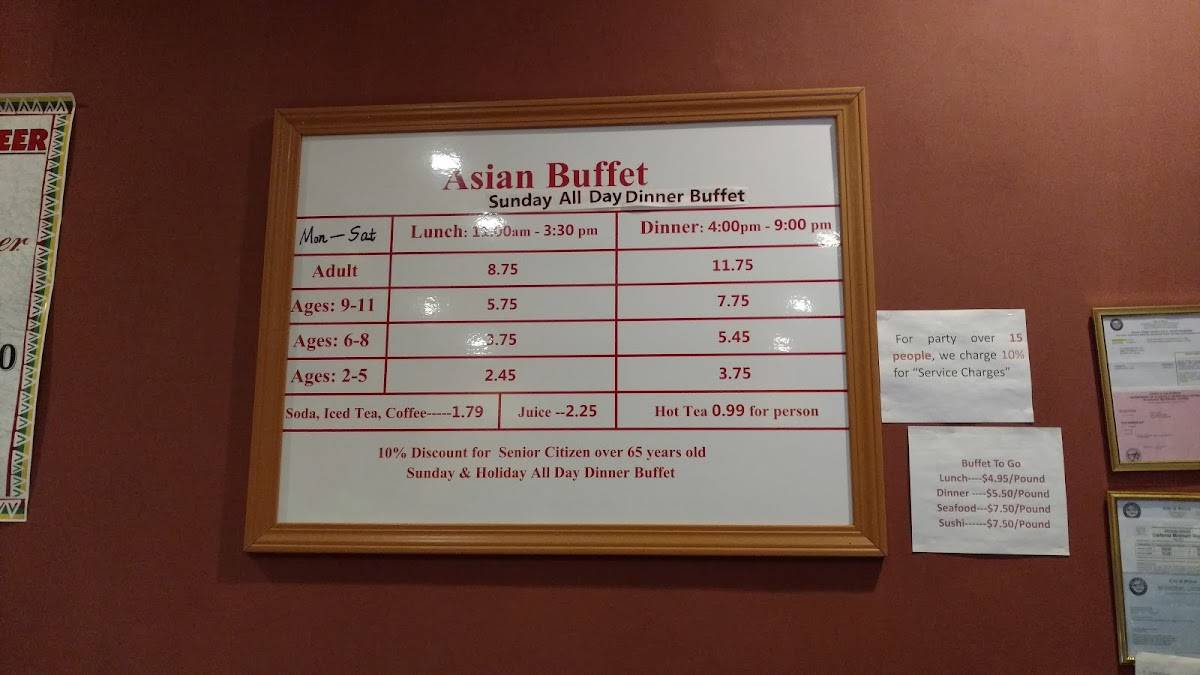 EER
er
0
Asian Buffet
Sunday All Day Dinner Buffet
Mon - Sat Lunch: 11:00am - 3:30 pm Dinner: 4:00pm - 9:00 pm
Adult 8.75 11.75
Ages: 9-11 5.75 7.75
Ages: 6-8 3.75 5.45
Ages: 2-5 2.45 3.75
Soda, Iced Tea, Coffee-----1.79 Juice --2.25 Hot Tea 0.99 for person
10% Discount for Senior Citizen over 65 years old
Sunday & Holiday All Day Dinner Buffet
For party over 15
people, we charge 10%
for “Service Charges”
Buffet To Go
Lunch----$4.95/Pound
Dinner ----$5.50/Pound
Seafood---$7.50/Pound
Sushi------$7.50/Pound